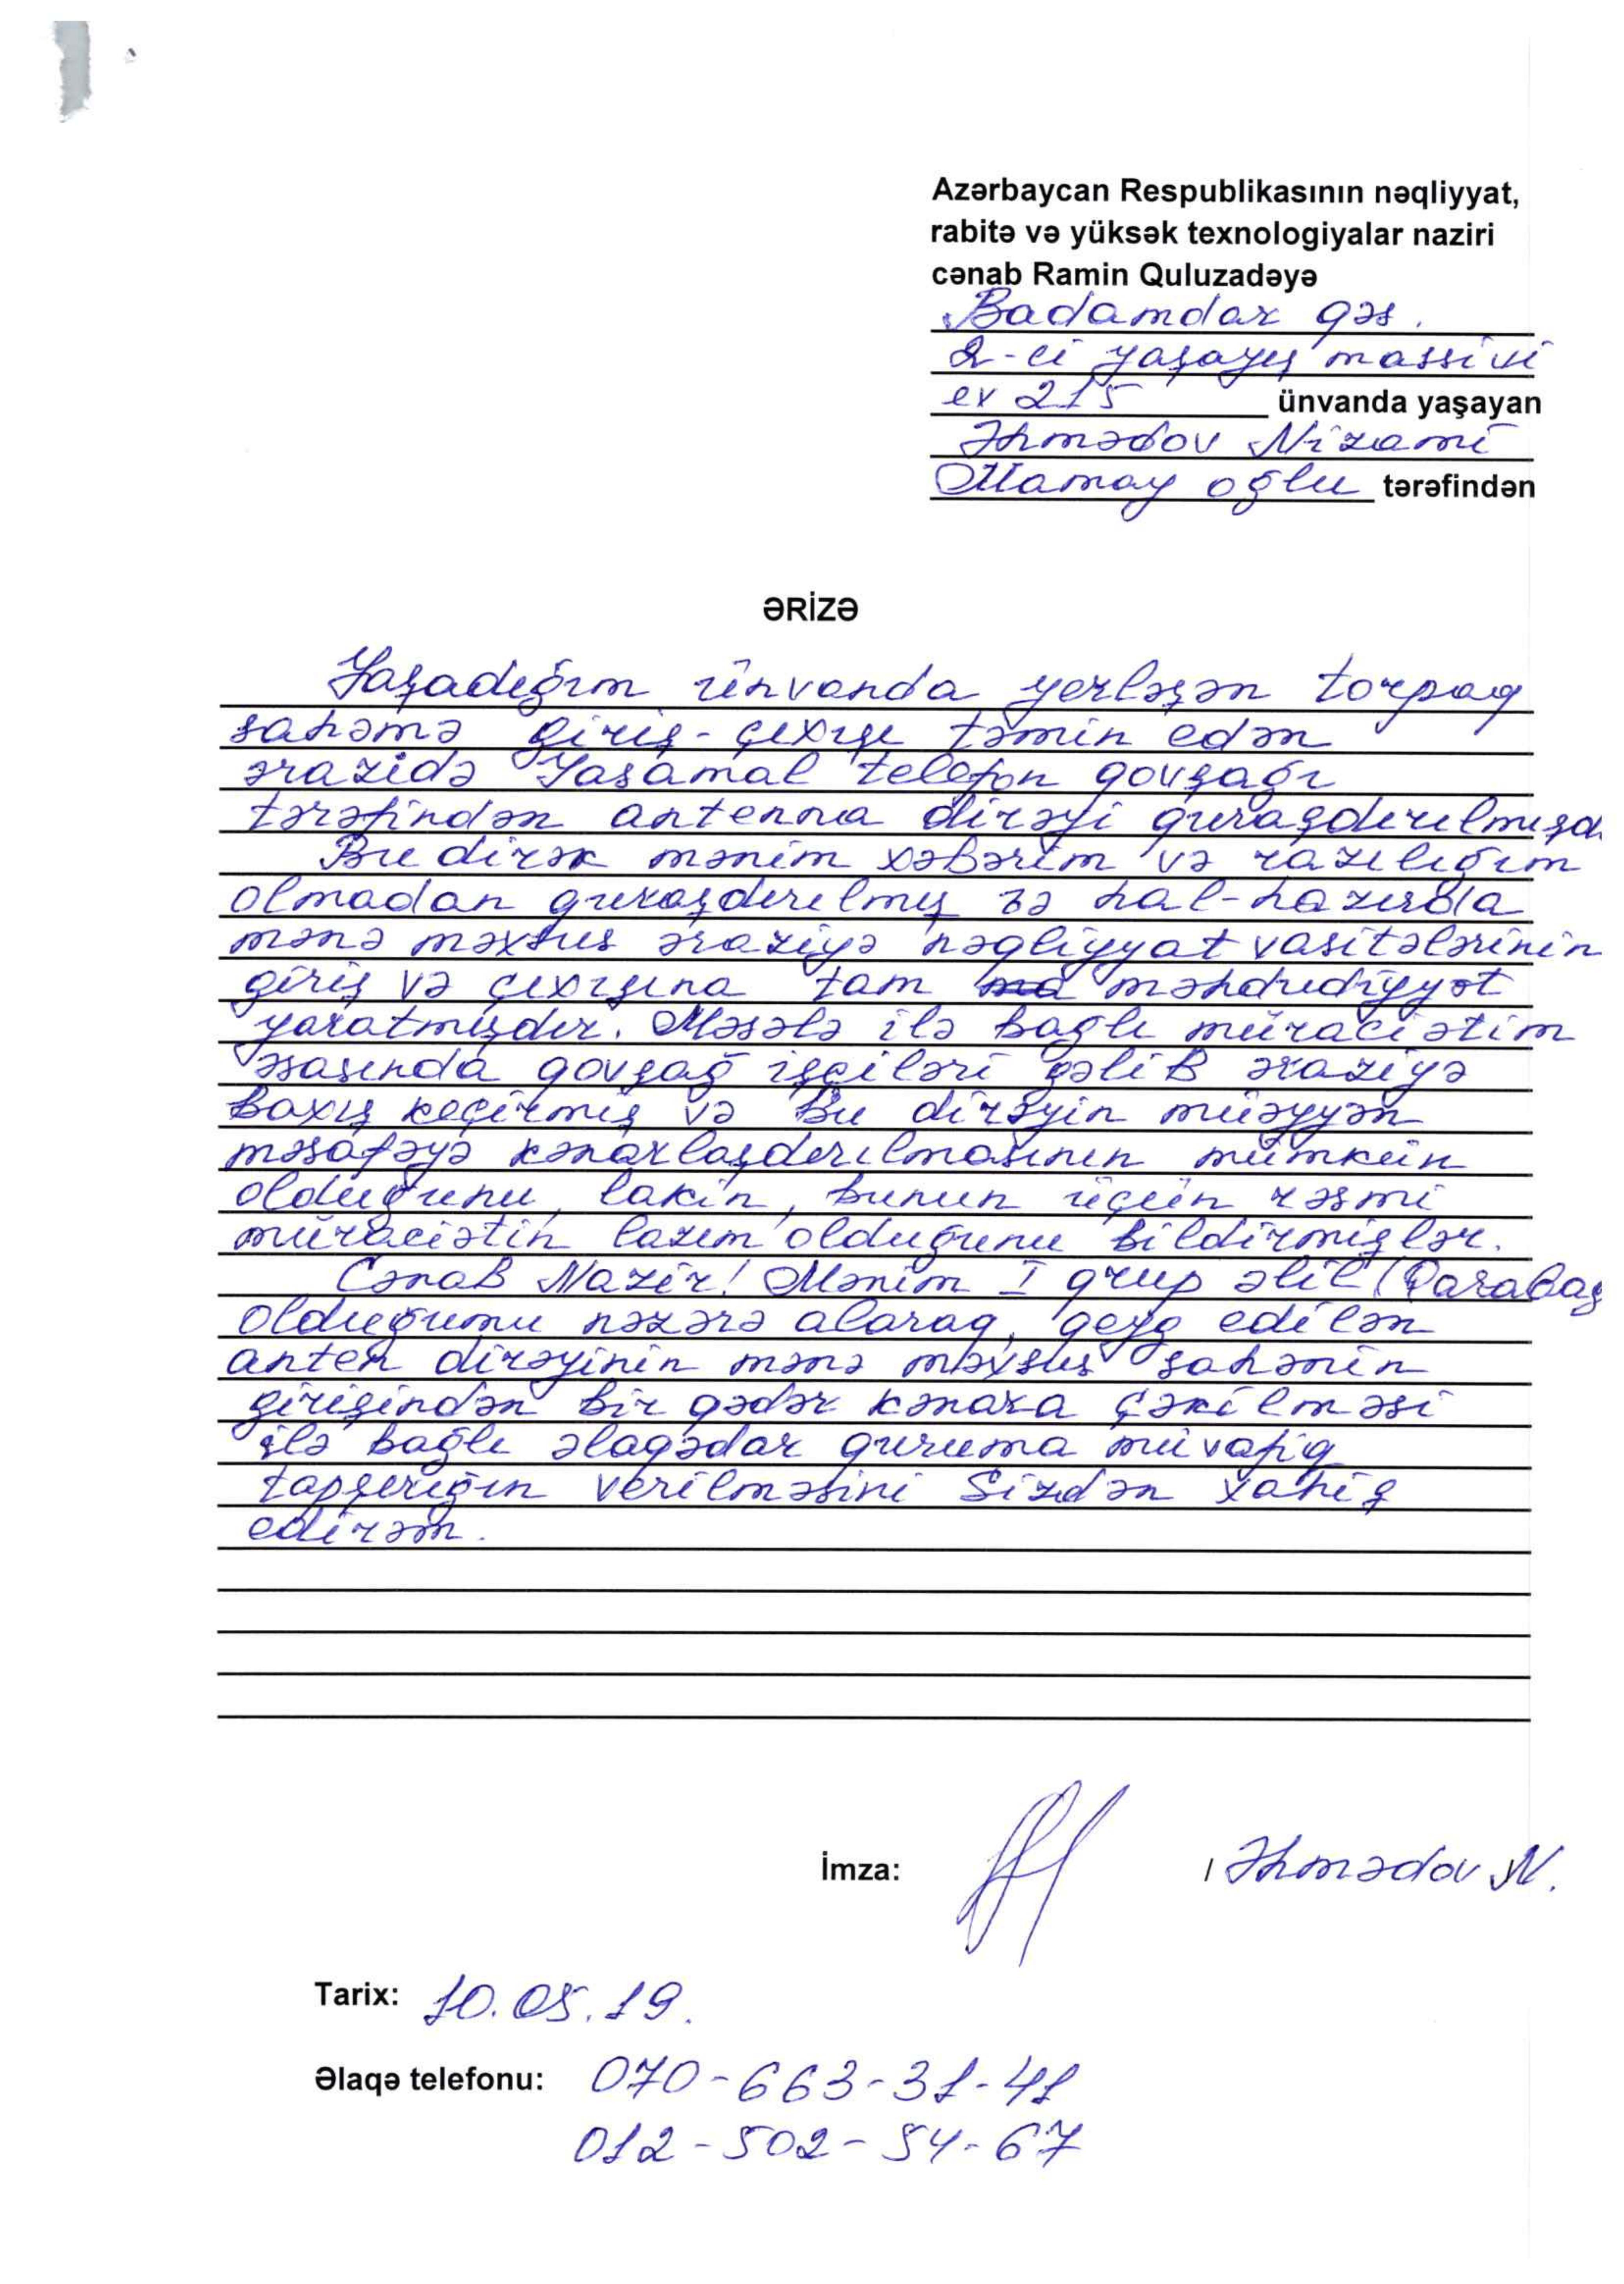 Azərbaycan Respublikasının nəqliyyat,
rabitə və yüksək texnologiyalar naziri
cənab Ramin Quluzadəyə
Badamdar qəs.
2-ci yaşayış massivi
ev 215 ünvanda yaşayan
Əhmədov Nizami
Mamay oğlu tərəfindən
ƏRİZƏ
Yaşadığım ünvanda yerləşən torpaq
sahəmə giriş-çıxışı təmin edən
ərazidə Yasamal telefon qovşağı
tərəfindən antenna dirəyi quraşdırılmışd
Bu dirək mənim xəbərim və razılığım
olmadan quraşdırılmış və hal-hazırda
mənə məxsus əraziyə nəqliyyat vasitələrinin
giriş və çıxışına tam məhdudiyyət
yaratmışdır. Məsələ ilə bağlı müraciətim
əsasında qovşağ işçiləri gəlib əraziyə
baxış keçirmiş və bu dirəyin müəyyən
məsafəyə kənarlaşdırılmasının mümkün
olduğunu, lakin, bunun üçün rəsmi
müraciətin lazım olduğunu bildirmişlər.
Cənab Nazir! Mənim I qrup əlil (Qarabağ
olduğumu nəzərə alaraq, qeyd edilən
anten dirəyinin mənə məxsus sahənin
girişindən bir qədər kənara çəkilməsi
ilə bağlı əlaqədar quruma müvafiq
tapşırığın verilməsini Sizdən xahiş
edirəm.
İmza: / Əhmədov N.
Tarix: 10.05.19.
Əlaqə telefonu: 070-663-31-41
012-502-54-67